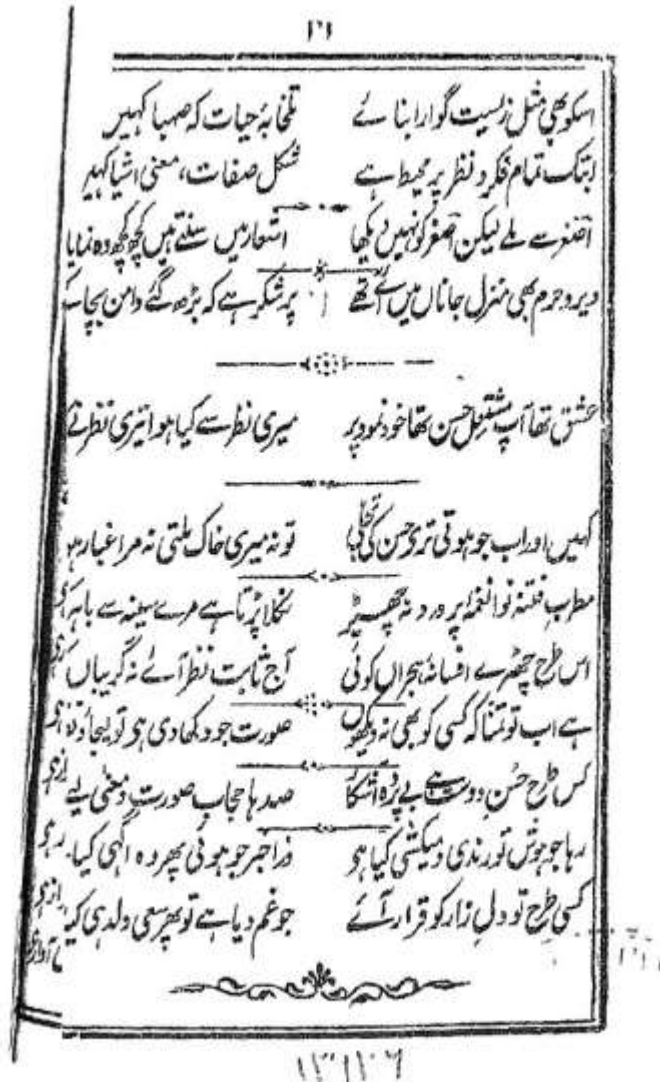 اسکو بھی مثل زیست گوارا بنائے تلخابۂ حیات کہ صہبا کہیں
ابتک تمام فکر و نظر پر محیط ہے شکل صفات، معنی اشیا کہیں
اصغر سے ملے لیکن اصغر کو نہیں دیکھا اشعار میں سنتے ہیں کچھ کچھ وہ نمایا
دیر و حرم بھی منزل جاناں میں آئے تھے پر شکر ہے کہ بڑھ گئے دامن بچا کے
عشق تھا آپ مشتعل حسن تھا خود نمود پر میری نظر سے کیا ہوا تیری نظر نے
کہیں اور اب جو ہوتی تری حسن کی تجلی تو نہ میری خاک ملتی نہ مرا غبار ہو
مطرب فتنہ نوا نغمۂ پر درد نہ چھیڑ نکلا پڑتا ہے مرے سینہ سے باہر
اس طرح چھڑے افسانۂ ہجراں کوئی آج ثابت نظر آئے نہ گریباں
ہے اب تو تمنا کہ کسی کو بھی نہ دیکھوں صورت جو دکھا دی ہو تو لیجاؤ
کس طرح حسن دوست ہے بے پردہ آشکار صدہا حجاب صورت و معنی لیے
رہا جو جوش تو رندی و میکشی کیا ہو ذرا خبر جو ہوئی پھر وہ آگہی کیا
کسی طرح تو دل زار کو قرار آئے جو غم دیا ہے تو پھر سعی ولدہی کیا